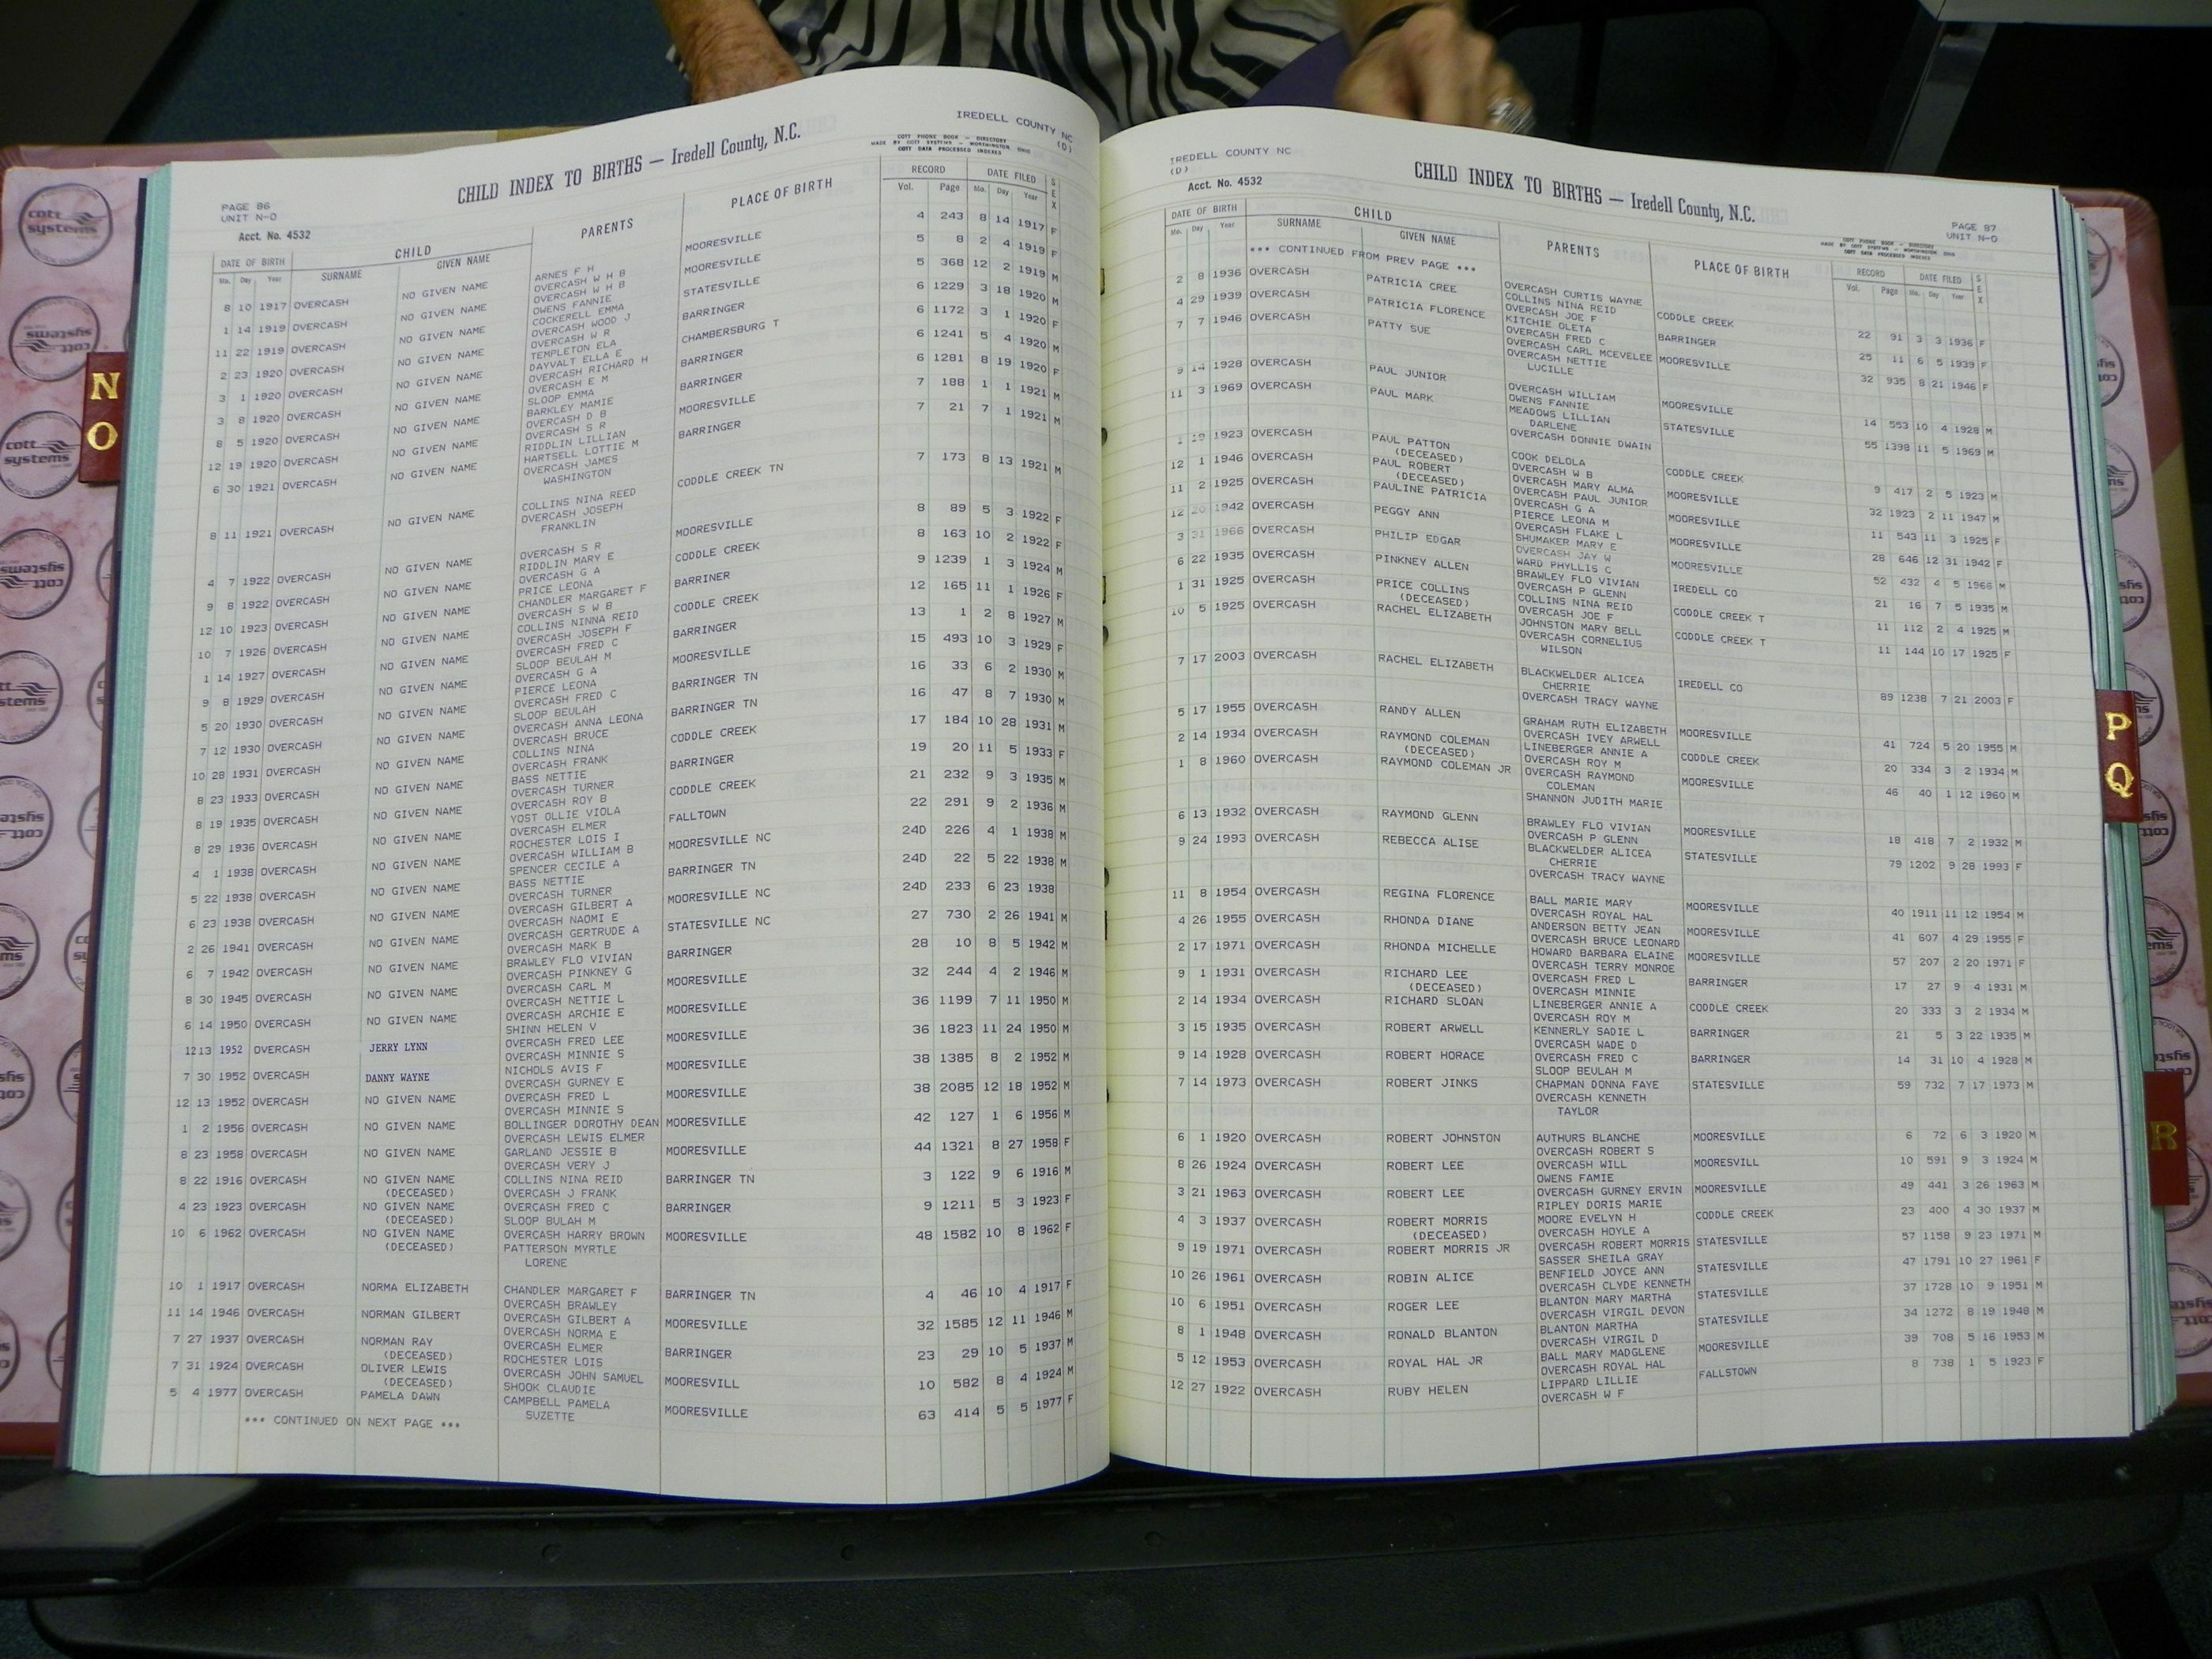 IREDELL COUNTY NC
(D)
CHILD INDEX TO BIRTHS — Iredell County, N.C.
COTT PHONE BOOK — DIRECTORY
MADE BY COTT SYSTEMS — WORTHINGTON, OHIO
COTT DATA PROCESSED INDEXES
PAGE 86
UNIT N-O
Acct. No. 4532
DATE OF BIRTH CHILD PARENTS PLACE OF BIRTH RECORD DATE FILED SEX
Mo. Day Year SURNAME GIVEN NAME Vol. Page Mo. Day Year
8 10 1917 OVERCASH NO GIVEN NAME ARNES F H MOORESVILLE 4 243 8 14 1917 F
OVERCASH W H B
1 14 1919 OVERCASH NO GIVEN NAME OVERCASH W H B MOORESVILLE 5 8 2 4 1919 F
OWENS FANNIE
11 22 1919 OVERCASH NO GIVEN NAME COCKERELL EMMA STATESVILLE 5 368 12 2 1919 M
OVERCASH WOOD J
2 23 1920 OVERCASH NO GIVEN NAME OVERCASH W R BARRINGER 6 1229 3 18 1920 M
TEMPLETON ELA
3 1 1920 OVERCASH NO GIVEN NAME DAYVALT ELLA E CHAMBERSBURG T 6 1172 3 1 1920 F
OVERCASH RICHARD H
3 8 1920 OVERCASH NO GIVEN NAME OVERCASH E M BARRINGER 6 1241 5 4 1920 M
SLOOP EMMA
8 5 1920 OVERCASH NO GIVEN NAME BARKLEY MAMIE BARRINGER 6 1281 8 19 1920 F
OVERCASH D B
12 19 1920 OVERCASH NO GIVEN NAME OVERCASH S R MOORESVILLE 7 188 1 1 1921 M
RIDDLIN LILLIAN
6 30 1921 OVERCASH NO GIVEN NAME HARTSELL LOTTIE M BARRINGER 7 21 7 1 1921 M
OVERCASH JAMES
WASHINGTON
8 11 1921 OVERCASH NO GIVEN NAME COLLINS NINA REED CODDLE CREEK TN 7 173 8 13 1921 M
OVERCASH JOSEPH
FRANKLIN
4 7 1922 OVERCASH NO GIVEN NAME OVERCASH S R MOORESVILLE 8 89 5 3 1922 F
RIDDLIN MARY E
9 8 1922 OVERCASH NO GIVEN NAME OVERCASH G A CODDLE CREEK 8 163 10 2 1922 F
PRICE LEONA
12 10 1923 OVERCASH NO GIVEN NAME CHANDLER MARGARET F BARRINER 9 1239 1 3 1924 M
OVERCASH S W B
10 7 1926 OVERCASH NO GIVEN NAME COLLINS NINNA REID CODDLE CREEK 12 165 11 1 1926 F
OVERCASH JOSEPH F
1 14 1927 OVERCASH NO GIVEN NAME OVERCASH FRED C BARRINGER 13 1 2 8 1927 M
SLOOP BEULAH M
9 8 1929 OVERCASH NO GIVEN NAME OVERCASH G A MOORESVILLE 15 493 10 3 1929 F
PIERCE LEONA
5 20 1930 OVERCASH NO GIVEN NAME OVERCASH FRED C BARRINGER TN 16 33 6 2 1930 M
SLOOP BEULAH
7 12 1930 OVERCASH NO GIVEN NAME OVERCASH ANNA LEONA BARRINGER TN 16 47 8 7 1930 M
OVERCASH BRUCE
10 28 1931 OVERCASH NO GIVEN NAME COLLINS NINA CODDLE CREEK 17 184 10 28 1931 M
OVERCASH FRANK
8 23 1933 OVERCASH NO GIVEN NAME BASS NETTIE BARRINGER 19 20 11 5 1933 F
OVERCASH TURNER
8 19 1935 OVERCASH NO GIVEN NAME OVERCASH ROY B CODDLE CREEK 21 232 9 3 1935 M
YOST OLLIE VIOLA
8 29 1936 OVERCASH NO GIVEN NAME OVERCASH ELMER FALLTOWN 22 291 9 2 1936 M
ROCHESTER LOIS I
4 1 1938 OVERCASH NO GIVEN NAME OVERCASH WILLIAM B MOORESVILLE NC 24D 226 4 1 1938 M
SPENCER CECILE A
5 22 1938 OVERCASH NO GIVEN NAME BASS NETTIE BARRINGER TN 24D 22 5 22 1938 M
OVERCASH TURNER
6 23 1938 OVERCASH NO GIVEN NAME OVERCASH GILBERT A MOORESVILLE NC 24D 233 6 23 1938
OVERCASH NAOMI E
2 26 1941 OVERCASH NO GIVEN NAME OVERCASH GERTRUDE A STATESVILLE NC 27 730 2 26 1941 M
OVERCASH MARK B
6 7 1942 OVERCASH NO GIVEN NAME BRAWLEY FLO VIVIAN BARRINGER 28 10 8 5 1942 M
OVERCASH PINKNEY G
8 30 1945 OVERCASH NO GIVEN NAME OVERCASH CARL M MOORESVILLE 32 244 4 2 1946 M
OVERCASH NETTIE L
6 14 1950 OVERCASH NO GIVEN NAME OVERCASH ARCHIE E MOORESVILLE 36 1199 7 11 1950 M
SHINN HELEN V
12 13 1952 OVERCASH JERRY LYNN OVERCASH FRED LEE MOORESVILLE 36 1823 11 24 1950 M
OVERCASH MINNIE S
7 30 1952 OVERCASH DANNY WAYNE NICHOLS AVIS F MOORESVILLE 38 1385 8 2 1952 M
OVERCASH GURNEY E
12 13 1952 OVERCASH NO GIVEN NAME OVERCASH FRED L MOORESVILLE 38 2085 12 18 1952 M
OVERCASH MINNIE S
1 2 1956 OVERCASH NO GIVEN NAME BOLLINGER DOROTHY DEAN MOORESVILLE 42 127 1 6 1956 M
OVERCASH LEWIS ELMER
8 23 1958 OVERCASH NO GIVEN NAME GARLAND JESSIE B MOORESVILLE 44 1321 8 27 1958 F
OVERCASH VERY J
8 22 1916 OVERCASH NO GIVEN NAME COLLINS NINA REID BARRINGER TN 3 122 9 6 1916 M
(DECEASED) OVERCASH J FRANK
4 23 1923 OVERCASH NO GIVEN NAME OVERCASH FRED C BARRINGER 9 1211 5 3 1923 F
(DECEASED) SLOOP BULAH M
10 6 1962 OVERCASH NO GIVEN NAME OVERCASH HARRY BROWN MOORESVILLE 48 1582 10 8 1962 F
(DECEASED) PATTERSON MYRTLE
LORENE
10 1 1917 OVERCASH NORMA ELIZABETH CHANDLER MARGARET F BARRINGER TN 4 46 10 4 1917 F
OVERCASH BRAWLEY
11 14 1946 OVERCASH NORMAN GILBERT OVERCASH GILBERT A MOORESVILLE 32 1585 12 11 1946 M
OVERCASH NORMA E
7 27 1937 OVERCASH NORMAN RAY OVERCASH ELMER BARRINGER 23 29 10 5 1937 M
(DECEASED) ROCHESTER LOIS
7 31 1924 OVERCASH OLIVER LEWIS OVERCASH JOHN SAMUEL MOORESVILL 10 582 8 4 1924 M
(DECEASED) SHOOK CLAUDIE
5 4 1977 OVERCASH PAMELA DAWN CAMPBELL PAMELA MOORESVILLE 63 414 5 5 1977 F
SUZETTE
*** CONTINUED ON NEXT PAGE ***
IREDELL COUNTY NC
(D)
Acct. No. 4532
CHILD INDEX TO BIRTHS — Iredell County, N.C.
PAGE 87
UNIT N-O
COTT PHONE BOOK — DIRECTORY
MADE BY COTT SYSTEMS — WORTHINGTON, OHIO
COTT DATA PROCESSED INDEXES
DATE OF BIRTH CHILD PARENTS PLACE OF BIRTH RECORD DATE FILED SEX
Mo. Day Year SURNAME GIVEN NAME Vol. Page Mo. Day Year
*** CONTINUED FROM PREV PAGE ***
2 8 1936 OVERCASH PATRICIA CREE OVERCASH CURTIS WAYNE CODDLE CREEK 22 91 3 3 1936 F
COLLINS NINA REID
4 29 1939 OVERCASH PATRICIA FLORENCE OVERCASH JOE F BARRINGER 25 11 6 5 1939 F
KITCHIE OLETA
7 7 1946 OVERCASH PATTY SUE OVERCASH FRED C MOORESVILLE 32 935 8 21 1946 F
OVERCASH CARL MCEVELEE
OVERCASH NETTIE
LUCILLE
9 14 1928 OVERCASH PAUL JUNIOR OVERCASH WILLIAM MOORESVILLE 14 553 10 4 1928 M
OWENS FANNIE
11 3 1969 OVERCASH PAUL MARK MEADOWS LILLIAN STATESVILLE 55 1398 11 5 1969 M
DARLENE
OVERCASH DONNIE DWAIN
1 19 1923 OVERCASH PAUL PATTON COOK DELOLA CODDLE CREEK 9 417 2 5 1923 M
(DECEASED) OVERCASH W B
12 1 1946 OVERCASH PAUL ROBERT OVERCASH MARY ALMA MOORESVILLE 32 1923 2 11 1947 M
(DECEASED) OVERCASH PAUL JUNIOR
11 2 1925 OVERCASH PAULINE PATRICIA OVERCASH G A MOORESVILLE 11 543 11 3 1925 F
PIERCE LEONA M
12 20 1942 OVERCASH PEGGY ANN OVERCASH FLAKE L MOORESVILLE 28 646 12 31 1942 F
SHUMAKER MARY E
3 31 1966 OVERCASH PHILIP EDGAR OVERCASH JAY W MOORESVILLE 52 432 4 5 1966 M
WARD PHYLLIS C
6 22 1935 OVERCASH PINKNEY ALLEN BRAWLEY FLO VIVIAN IREDELL CO 21 16 7 5 1935 M
OVERCASH P GLENN
1 31 1925 OVERCASH PRICE COLLINS COLLINS NINA REID CODDLE CREEK T 11 112 2 4 1925 M
(DECEASED) OVERCASH JOE F
10 5 1925 OVERCASH RACHEL ELIZABETH JOHNSTON MARY BELL CODDLE CREEK T 11 144 10 17 1925 F
OVERCASH CORNELIUS
WILSON
7 17 2003 OVERCASH RACHEL ELIZABETH BLACKWELDER ALICEA IREDELL CO 89 1238 7 21 2003 F
CHERRIE
OVERCASH TRACY WAYNE
5 17 1955 OVERCASH RANDY ALLEN GRAHAM RUTH ELIZABETH MOORESVILLE 41 724 5 20 1955 M
OVERCASH IVEY ARWELL
2 14 1934 OVERCASH RAYMOND COLEMAN LINEBERGER ANNIE A CODDLE CREEK 20 334 3 2 1934 M
(DECEASED) OVERCASH ROY M
1 8 1960 OVERCASH RAYMOND COLEMAN JR OVERCASH RAYMOND MOORESVILLE 46 40 1 12 1960 M
COLEMAN
SHANNON JUDITH MARIE
6 13 1932 OVERCASH RAYMOND GLENN BRAWLEY FLO VIVIAN MOORESVILLE 18 418 7 2 1932 M
OVERCASH P GLENN
9 24 1993 OVERCASH REBECCA ALISE BLACKWELDER ALICEA STATESVILLE 79 1202 9 28 1993 F
CHERRIE
OVERCASH TRACY WAYNE
11 8 1954 OVERCASH REGINA FLORENCE BALL MARIE MARY MOORESVILLE 40 1911 11 12 1954 M
OVERCASH ROYAL HAL
4 26 1955 OVERCASH RHONDA DIANE ANDERSON BETTY JEAN MOORESVILLE 41 607 4 29 1955 F
OVERCASH BRUCE LEONARD
2 17 1971 OVERCASH RHONDA MICHELLE HOWARD BARBARA ELAINE MOORESVILLE 57 207 2 20 1971 F
OVERCASH TERRY MONROE
9 1 1931 OVERCASH RICHARD LEE OVERCASH FRED L BARRINGER 17 27 9 4 1931 M
(DECEASED) OVERCASH MINNIE
2 14 1934 OVERCASH RICHARD SLOAN LINEBERGER ANNIE A CODDLE CREEK 20 333 3 2 1934 M
OVERCASH ROY M
3 15 1935 OVERCASH ROBERT ARWELL KENNERLY SADIE L BARRINGER 21 5 3 22 1935 M
OVERCASH WADE D
9 14 1928 OVERCASH ROBERT HORACE OVERCASH FRED C BARRINGER 14 31 10 4 1928 M
SLOOP BEULAH M
7 14 1973 OVERCASH ROBERT JINKS CHAPMAN DONNA FAYE STATESVILLE 59 732 7 17 1973 M
OVERCASH KENNETH
TAYLOR
6 1 1920 OVERCASH ROBERT JOHNSTON AUTHURS BLANCHE MOORESVILLE 6 72 6 3 1920 M
OVERCASH ROBERT S
8 26 1924 OVERCASH ROBERT LEE OVERCASH WILL MOORESVILL 10 591 9 3 1924 M
OWENS FAMIE
3 21 1963 OVERCASH ROBERT LEE OVERCASH GURNEY ERVIN MOORESVILLE 49 441 3 26 1963 M
RIPLEY DORIS MARIE
4 3 1937 OVERCASH ROBERT MORRIS MOORE EVELYN H CODDLE CREEK 23 400 4 30 1937 M
(DECEASED) OVERCASH HOYLE A
9 19 1971 OVERCASH ROBERT MORRIS JR OVERCASH ROBERT MORRIS STATESVILLE 57 1158 9 23 1971 M
SASSER SHEILA GRAY
10 26 1961 OVERCASH ROBIN ALICE BENFIELD JOYCE ANN STATESVILLE 47 1791 10 27 1961 F
OVERCASH CLYDE KENNETH
10 6 1951 OVERCASH ROGER LEE BLANTON MARY MARTHA STATESVILLE 37 1728 10 9 1951 M
OVERCASH VIRGIL DEVON
8 1 1948 OVERCASH RONALD BLANTON BLANTON MARTHA STATESVILLE 34 1272 8 19 1948 M
OVERCASH VIRGIL D
5 12 1953 OVERCASH ROYAL HAL JR BALL MARY MADGLENE MOORESVILLE 39 708 5 16 1953 M
OVERCASH ROYAL HAL
12 27 1922 OVERCASH RUBY HELEN LIPPARD LILLIE FALLSTOWN 8 738 1 5 1923 F
OVERCASH W F
N
O
P
Q
R
cott
systems